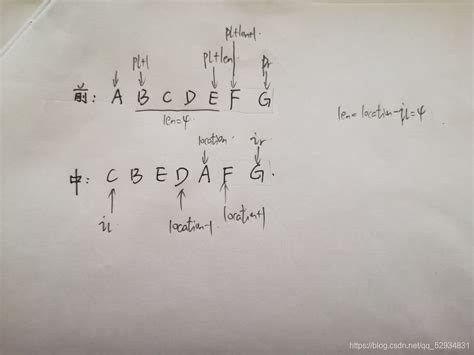 pl+len+1
pl+1 pl+len pr
前: A B C D E F G
len=4
len=location-il=4
location ir
中: C B E D A F G.
il location-1 location+1
https://blog.csdn.net/qq_52934831